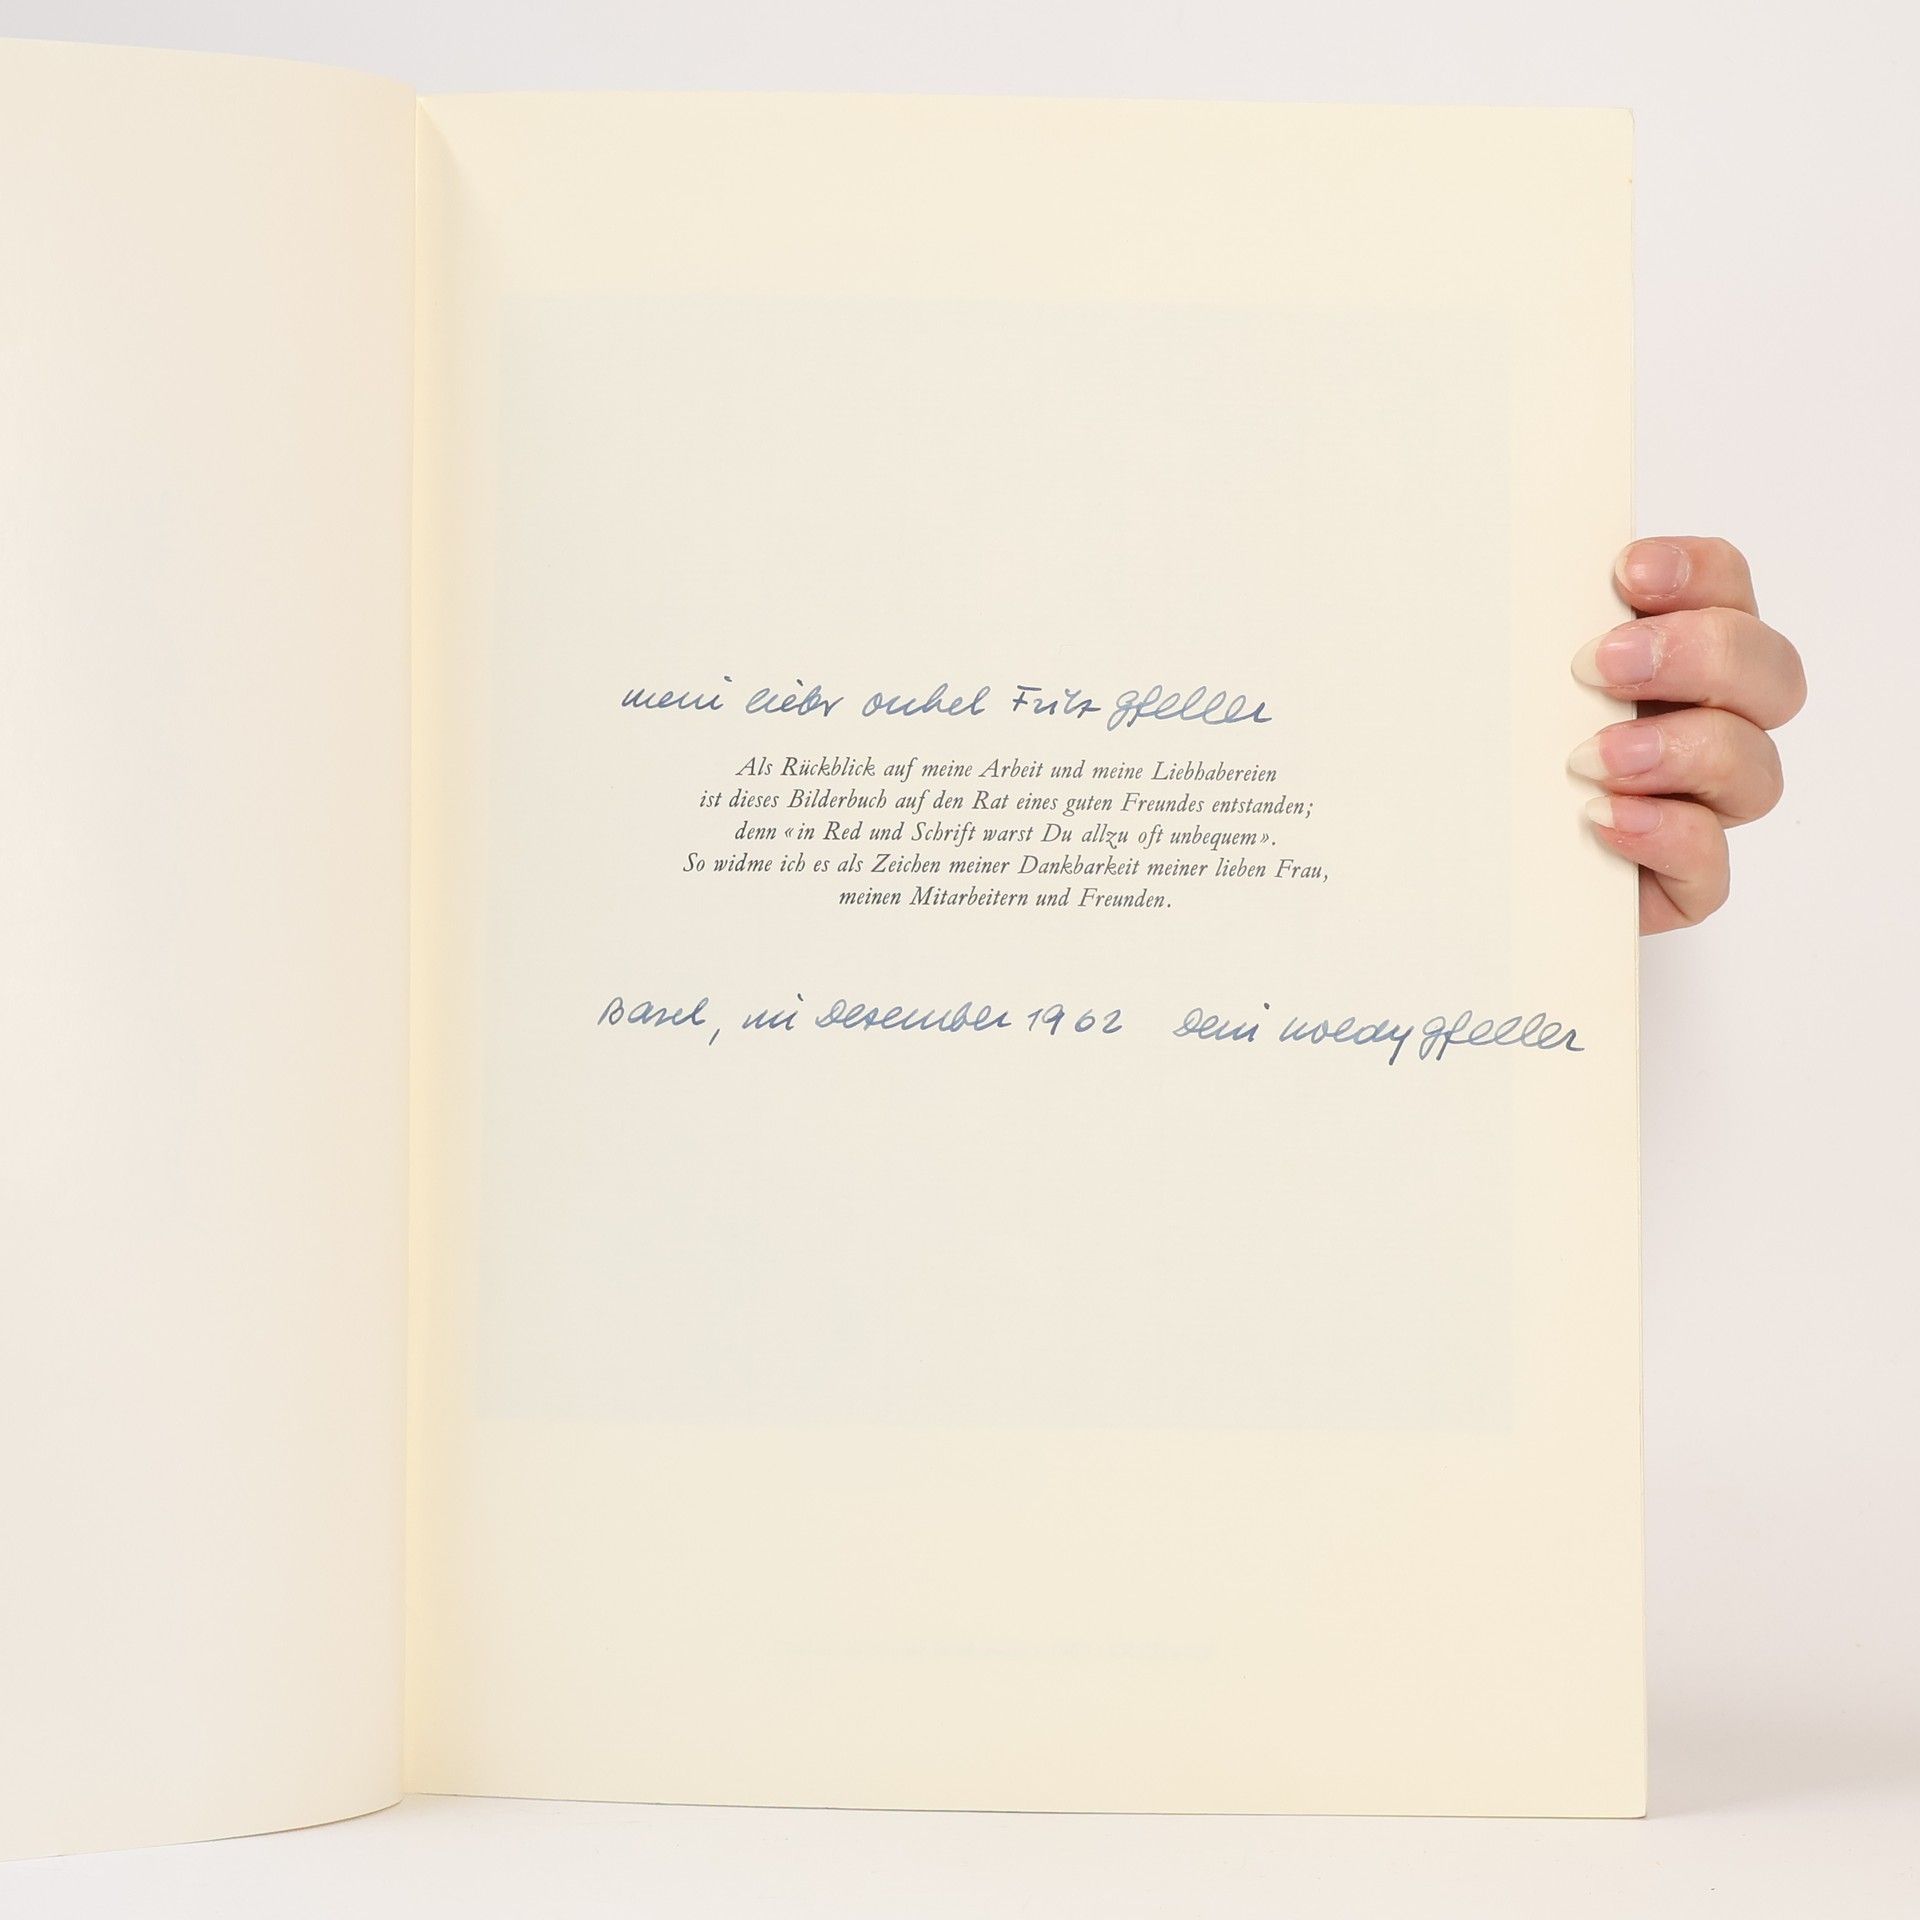 mein lieber onkel Fritz Gfeller
Als Rückblick auf meine Arbeit und meine Liebhabereien
ist dieses Bilderbuch auf den Rat eines guten Freundes entstanden;
denn «in Red und Schrift warst Du allzu oft unbequem».
So widme ich es als Zeichen meiner Dankbarkeit meiner lieben Frau,
meinen Mitarbeitern und Freunden.
Basel, im Dezember 1962 Dein Noldy Gfeller